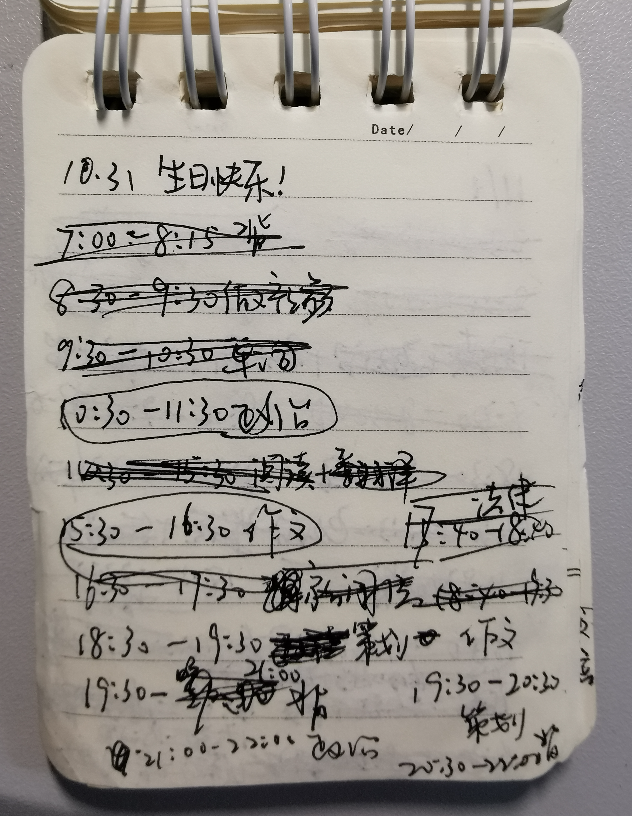 Date/ / /
10.31 生日快乐!
7:00-8:15 背
8:30-9:30 作文
9:30-10:30 单词
10:30-11:30 政治
阅读+翻译
15:30-16:30 作文
法律
17:40-18:40
16:30-17:30
18:30-19:30 策划 作文
19:30- 21:00 背
19:30-20:30
策划
21:00-22:00 政治
20:30-22:00 背